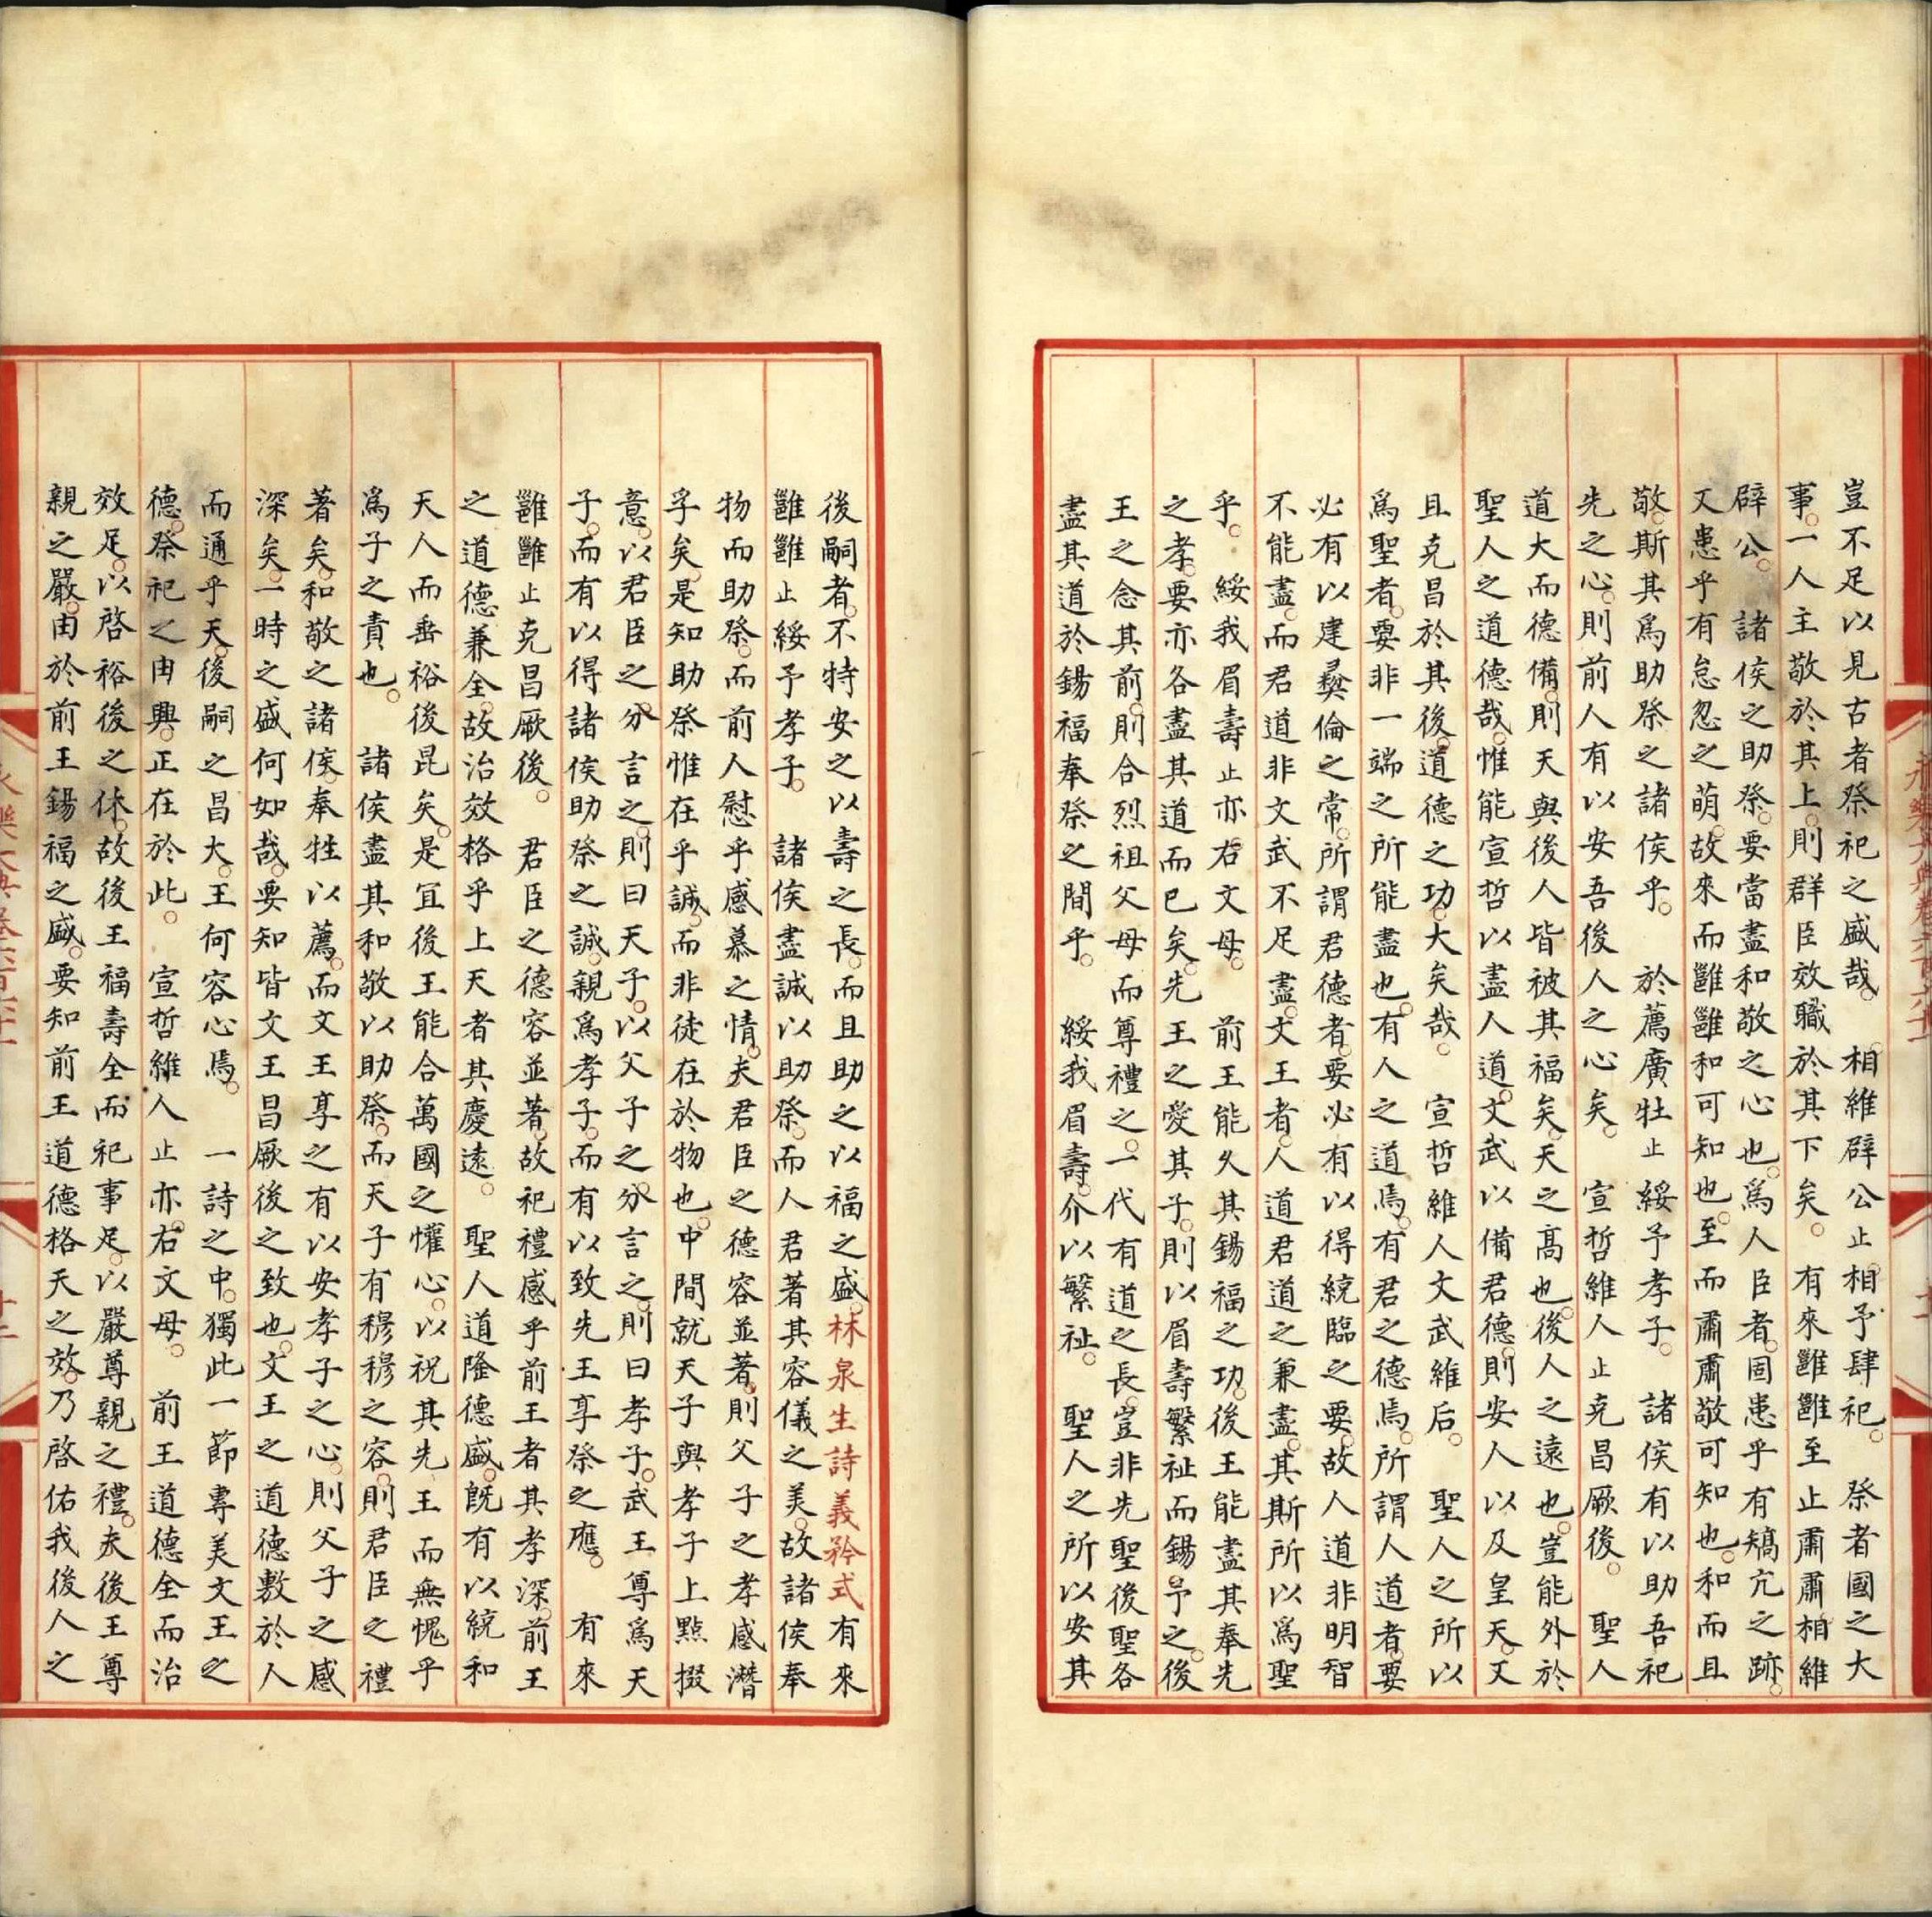 豈不足以見古者祭祀之盛哉。　相維辟公止相予肆祀。　祭者國之大
事。一人主敬於其上。則群臣效職於其下矣。　有來雝雝至止肅肅相維
辟公。　諸侯之助祭。要當盡和敬之心也。爲人臣者。固患乎有驕亢之跡。
又患乎有怠忽之萌。故來而雝雝和可知也。至而肅肅敬可知也。和而且
敬。斯其爲助祭之諸侯乎。　於薦廣牡止綏予孝子。　諸侯有以助吾祀
先之心。則前人有以安吾後人之心矣。　宣哲維人止克昌厥後。　聖人
道大而德備。則天與後人皆被其福矣。天之高也。後人之遠也。豈能外於
聖人之道德哉。惟能宣哲以盡人道。文武以備君德。則安人以及皇天。又
且克昌於其後。道德之功。大矣哉。　宣哲維人文武維后。　聖人之所以
爲聖者。要非一端之所能盡也。有人之道焉。有君之德焉。所謂人道者。要
必有以建彝倫之常。所謂君德者。要必有以得統臨之要。故人道非明智
不能盡。而君道非文武不足盡。文王者。人道君道之兼盡。其斯所以爲聖
乎。　綏我眉壽止亦右文母。　前王能久其錫福之功。後王能盡其奉先
之孝。要亦各盡其道而已矣。先王之愛其子。則以眉壽繁祉而錫予之。後
王之念其前。則合烈祖父母而尊禮之。一代有道之長。豈非先聖後聖各
盡其道於錫福奉祭之間乎。　綏我眉壽。介以繁祉。　聖人之所以安其
後嗣者。不特安之以壽之長。而且助之以福之盛。林泉生詩義矜式有來
雝雝止綏予孝子。　諸侯盡誠以助祭。而人君著其容儀之美。故諸侯奉
物而助祭。而前人慰乎感慕之情。夫君臣之德容並著。則父子之孝感潛
孚矣。是知助祭惟在乎誠。而非徒在於物也。中間就天子與孝子上點掇
意。以君臣之分言之。則曰天子。以父子之分言之。則曰孝子。武王尊爲天
子。而有以得諸侯助祭之誠。親爲孝子。而有以致先王享祭之應。　有來
雝雝止克昌厥後。　君臣之德容並著。故祀禮感乎前王者其孝深。前王
之道德兼全。故治效格乎上天者其慶遠。　聖人道隆德盛。旣有以統和
天人而垂裕後昆矣。是宜後王能合萬國之懽心。以祝其先王而無愧乎
爲子之責也。　諸侯盡其和敬以助祭。而天子有穆穆之容。則君臣之禮
著矣。和敬之諸侯。奉牲以薦。而文王享之有以安孝子之心。則父子之感
深矣。一時之盛何如哉。要知皆文王昌厥後之致也。文王之道德敷於人
而通乎天。後嗣之昌大。王何容心焉。　一詩之中。獨此一節專美文王之
德。祭祀之由興。正在於此。　宣哲維人止亦右文母。　前王道德全而治
效足。以啓裕後之休。故後王福壽全而祀事足。以嚴尊親之禮。夫後王尊
親之嚴。由於前王錫福之盛。要知前王道德格天之效。乃啓佑我後人之